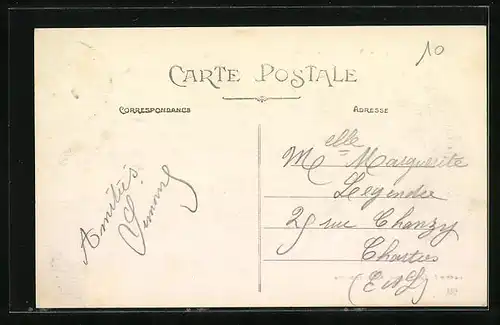 10
CARTE POSTALE
CORRESPONDANCE
ADRESSE
Amitiés
Melle Marguerite
Legendre
29 rue Chanzy
Chartres
(E et L)